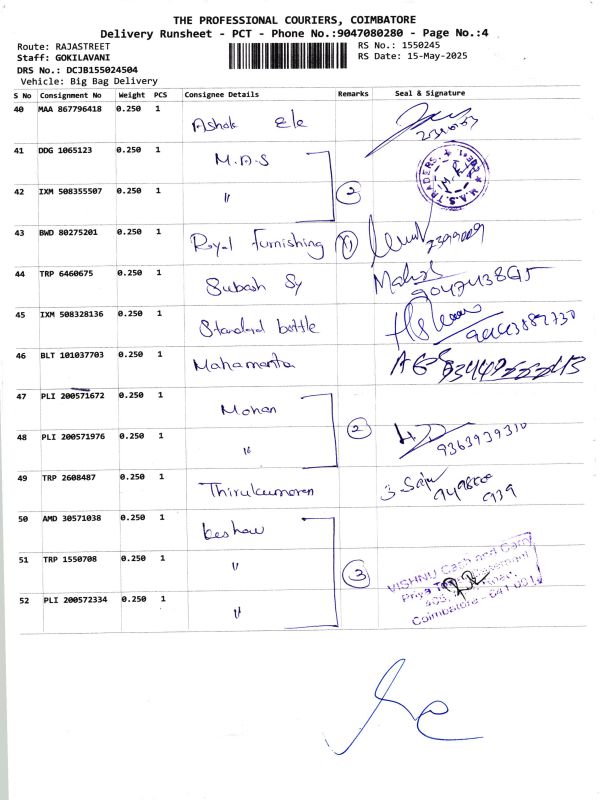 THE PROFESSIONAL COURIERS, COIMBATORE
Delivery Runsheet - PCT - Phone No.:9047080280 - Page No.:4
Route: RAJASTREET RS No.: 1550245
Staff: GOKILAVANI RS Date: 15-May-2025
DRS No.: DCJB155024504
Vehicle: Big Bag Delivery
S No Consignment No Weight PCS Consignee Details Remarks Seal & Signature
40 MAA 867796418 0.250 1 Ashok Ele
41 DDG 1065123 0.250 1 M.A.S M.A.S. TRADERS
42 IXM 508355507 0.250 1 " 2
43 BWD 80275201 0.250 1 Royal Furnishing 1
44 TRP 6460675 0.250 1 Subash Sy
45 IXM 508328136 0.250 1 Standard bottle
46 BLT 101037703 0.250 1 Mahamantra
47 PLI 200571672 0.250 1 Mohan
48 PLI 200571976 0.250 1 " 2 9363939310
49 TRP 2608487 0.250 1 Thirukumaran
50 AMD 30571038 0.250 1 keshav
51 TRP 1550708 0.250 1 " 3 VISHNU Cash and Carry
52 PLI 200572334 0.250 1 "
Coimbatore - 641 001